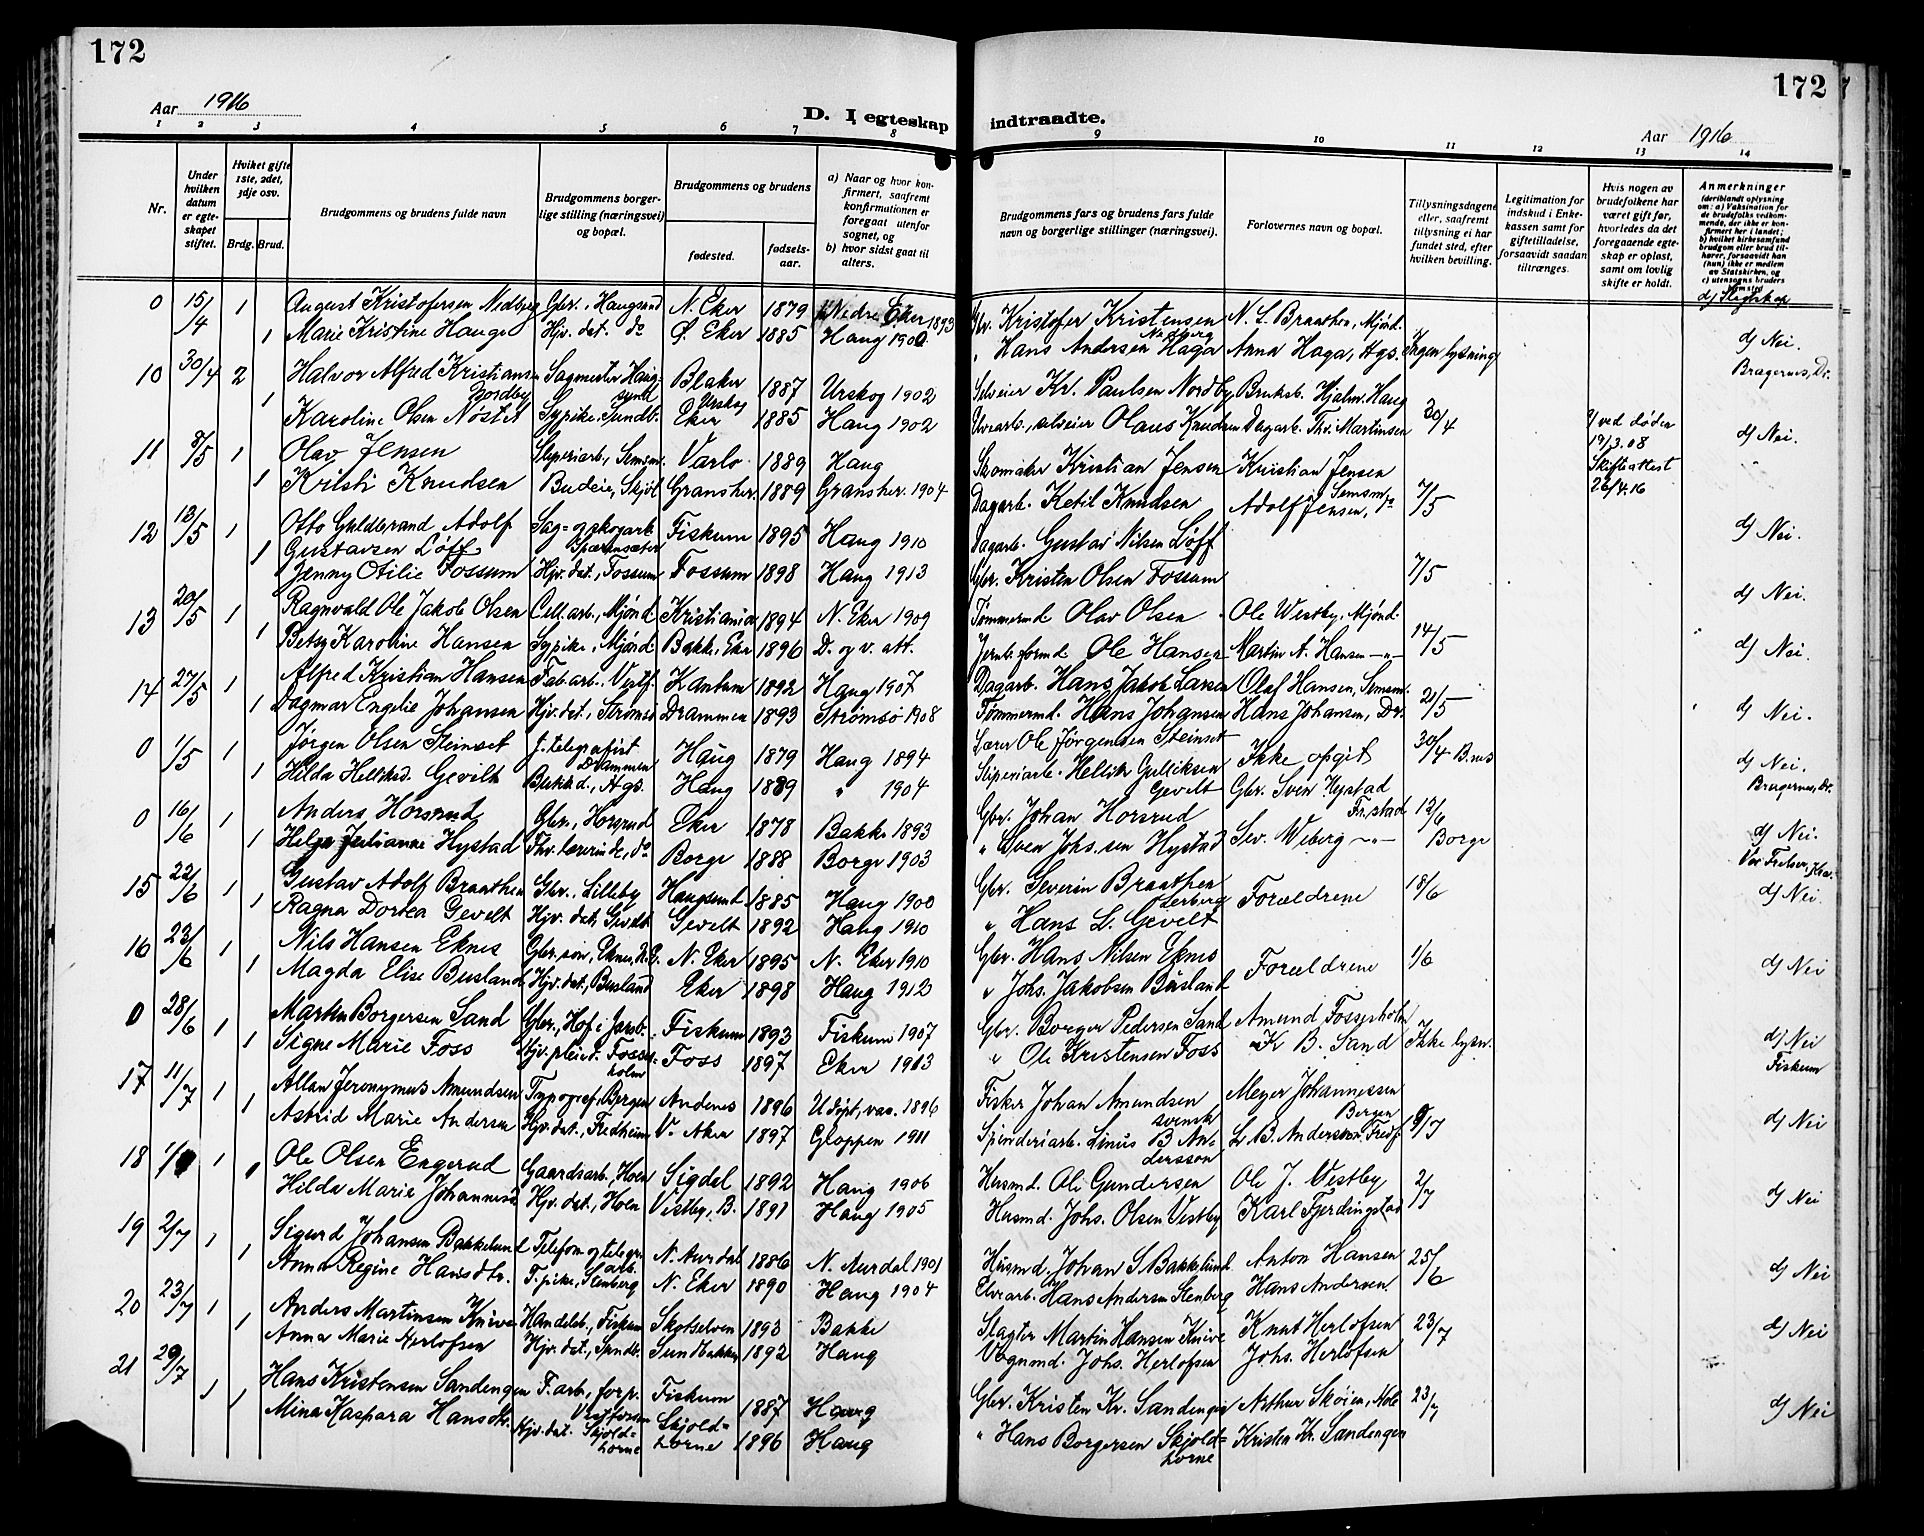 172
172
Aar 1916
D. I egteskap
indtraadte.
Aar 1916
1 2 3 4 5 6 7 8
9 10 11 12 13 14
Nr.
Under hvilken datum er egteskapet stiftet.
Hvilket gifte 1ste, 2det, 3dje osv.
Brdg. Brud.
Brudgommens og brudens fulde navn
Brudgommens borgerlige stilling (næringsvei) og bopæl.
Brudgommens og brudens
fødested.
fødselsaar.
a) Naar og hvor konfirmert, saafremt konfirmationen er foregaat utenfor sognet, og
b) hvor sidst gaat til alters.
Brudgommens fars og brudens fars fulde navn og borgerlige stillinger (næringsvei).
Forlovernes navn og bopæl.
Tillysningsdagene eller, saafremt tillysning ei har fundet sted, efter hvilken bevilling.
Legitimation for indskud i Enkekassen samt for giftetilladelse, forsaavidt saadan tiltrænges.
Hvis nogen av brudefolkene har været gift før, hvorledes da det foregaaende egteskap er opløst, samt om lovlig skifte er holdt.
Anmerkninger
(deriblandt oplysning om: a) Vaksination for de brudefolks vedkommende, der ikke er konfirmert her i landet; b) hvilket kirkesamfund brudgom eller brud tilhører, forsaavidt han (hun) ikke er medlem av Statskirken, og c) utensogns bruders hjemsted
d) Slegtskap
0 15/4 1 August Kristofersen Nedberg Gbr., Haugsund N. Eker 1879 Nedre Eker 1893 Gbr. Kristofer Kristensen Nedberg N. L. Braathen, Mjønd.
1 Marie Kristine Hauge Hjv. dat. do Ø. Eker 1885 Haug 1900 " Hans Andersen Haga Anna Haga, Hgs. Ingen lysning d) Nei.
Bragernes, Dr.
10 30/4 2 Halvor Alfred Kristiansen Nordby Sagmester Haugsund Blaker 1887 Urskog 1902 Selveier Kr. Paulsen Nordby Bruksb. Hjalm. Haug
1 Karoline Olsen Nøstet Sypike, Sundb. Eker 1885 Haug 1902 Elvearb., selveier Olaus Knudsen Dagarb. Thv. Martinsen 30/4 d) Nei.
Urskog
) ved døden
19/3.08
Skifteattest
26/4.16
11 8/5 1 Olav Jensen Sliperiarb., Semsm. Varlo 1889 Haug Skomaker Kristian Jensen Kristian Jensen Semsm.
1 Kristi Knudsen Budeie, Skjøl Gransher. 1889 Gransher. 1904 Dagarb. Ketil Knudsen Adolf Jensen, do 7/5 d) Nei.
12 13/5 1 Otto Guldbrand Adolf Gustavsen Løff Sag- og skogarb. Fiskum 1895 Haug 1910 Dagarb. Gustav Nilsen Løff
1 Jenny Otilie Fossum Hjv. dat., Fossum Fossum 1898 Haug 1913 Gbr. Kristen Olsen Fossum 7/5 d) Nei.
13 20/5 1 Ragnvald Ole Jakob Olsen Cell. arb., Mjønd Kristiania 1894 N. Eker 1909 Tømmermd Olav Olsen Ole Westby, Mjønd.
1 Betsy Karoline Hansen Sypike, Mjønd Bakke, Eker 1896 D. og v. att. Jernb. formd Ole Hansen Martin A. Hansen —"— 14/5 d) Nei.
14 27/5 1 Alfred Kristian Hansen Fab. arb. Vestf. 1892 Haug 1907 Dagarb. Hans Jakob Larsen Olaf Hansen, Semsm.
1 Dagmar Engelie Johansen Hjv. dat., Strømsø Drammen 1893 Strømsø 1908 Tømmermd. Hans Johansen Hans Johansen, Dr. 21/5 d) Nei.
0 1/5 1 Jørgen Olsen Steinset J. telegrafist Drammen Haug 1879 Haug 1894 Lærer Ole Jørgensen Steinset Ikke opgit 30/4 B.nes
1 Hilda Gevelt Hgs. Haug 1889 " 1904 Sliperiarb. Helik Gulliksen Gevelt d) Nei.
Bragernes, Dr.
0 16/6 1 Anders Horsrud Gbr., Horsrud Eker 1878 Bakke 1893 Gbr. Johan Horsrud Gbr. Sven Hystad Fr.stad 12/6
1 Helga Julianne Hystad Fhv. lærerinde, do Borge 1888. Borge 1903 " Sven Johs.sen Hystad Sev. Wiberg —"— Borge d) Nei.
Vor Frelser, Kra.
15 22/6 1 Gustav Adolf Braathen Gbr., Lilleby Haugsund 1885 Haug 1900 Gbr. Severin Braathen Forældrene 18/6
1 Ragna Dortea Gevelt Hjv. dat., Gevelt Gevelt 1892 Haug 1910 " Hans L. Gevelt d) Nei.
16 23/6 1 Nils Hansen Eknes Gbr. søn, Eknes, N. E. N. Eker 1895 N. Eker 1910 Gbr. Hans Nilsen Eknes Forældrene 1/6
1 Magda Elise Busland Hjv. dat., Busland Eker 1898 Haug 1912 " Johs. Jakobsen Busland d) Nei
0 28/6 1 Martin Borgersen Sand Gbr., Hof i Jarlsb. Fiskum 1893 Fiskum 1907 Gbr. Borger Pedersen Sand Amund Fossesholm
1 Signe Marie Foss Fossesholm Foss 1897 Eker 1913 " Ole Kristensen Foss Kr B. Sand Ikke lysn. d) Nei
Fiskum
17 11/7 1 Allan Jeronymus Amundsen Typograf, Bergen Andenes 1896 Udøpt, vac. 1896 Fisker Johan Amundsen Meyer Johannessen Bergen
1 Astrid Marie Andersen Hjv. dat., Fredheim V. Aker 1897 Gloppen 1911 Spinderiarb. Linus B Andersson svensk L. B. Andersson Fredh. 9/7 d) Nei
18 1 Ole Olsen Engerud Gaardsarb., Hoen Sigdal 1892 Haug 1906 Husmd. Ole Gundersen Ole J. Vestby 2/7
Hilda Marie Johannesd. Hjv. dat., Hoen Vestby, B. 1891 Haug 1905 Husmd. Johs. Olsen Vestby Karl Fjerdingstad d) Nei
19 2/7 1 Sigurd Johansen Bakkelund Telefon og telegr. arb. N. Aurdal 1886 N. Aurdal 1901 Husmd. Johan S Bakkelund. Anton Hansen 25/6
1 Anna Regine Hansdtr. T. pike, Stenberg N. Eker 1890 Haug 1904 Elvearb. Hans Andersen Stenberg Hans Andersen. d) Nei
20 23/7 1 Anders Martinsen Knive Handelsb., Fiskum Skotselven 1893 Bakke Slagter Martin Hansen Knive Knut Herlofsen 23/7
1 Anna Marie Herlofsen Hjv. dat., Sundb. Sundbakken 1892 Haug Vognmd. Johs. Herlofsen Johs. Herlofsen d) Nei
21 29/7 1 Hans Kristensen Sandengen F. arb., forp. Vestfossen Fiskum 1887 Haug Gbr. Kristen Kr. Sandengen Arthur Skøien, Hole 23/7
1 Mina Kaspara Hansdtr. Hjv. dat. Skjoldhorne Skjoldhorne 1896 Haug " Hans Borgersen Skjoldhorne Kristen Kr. Sandengen d) Nei